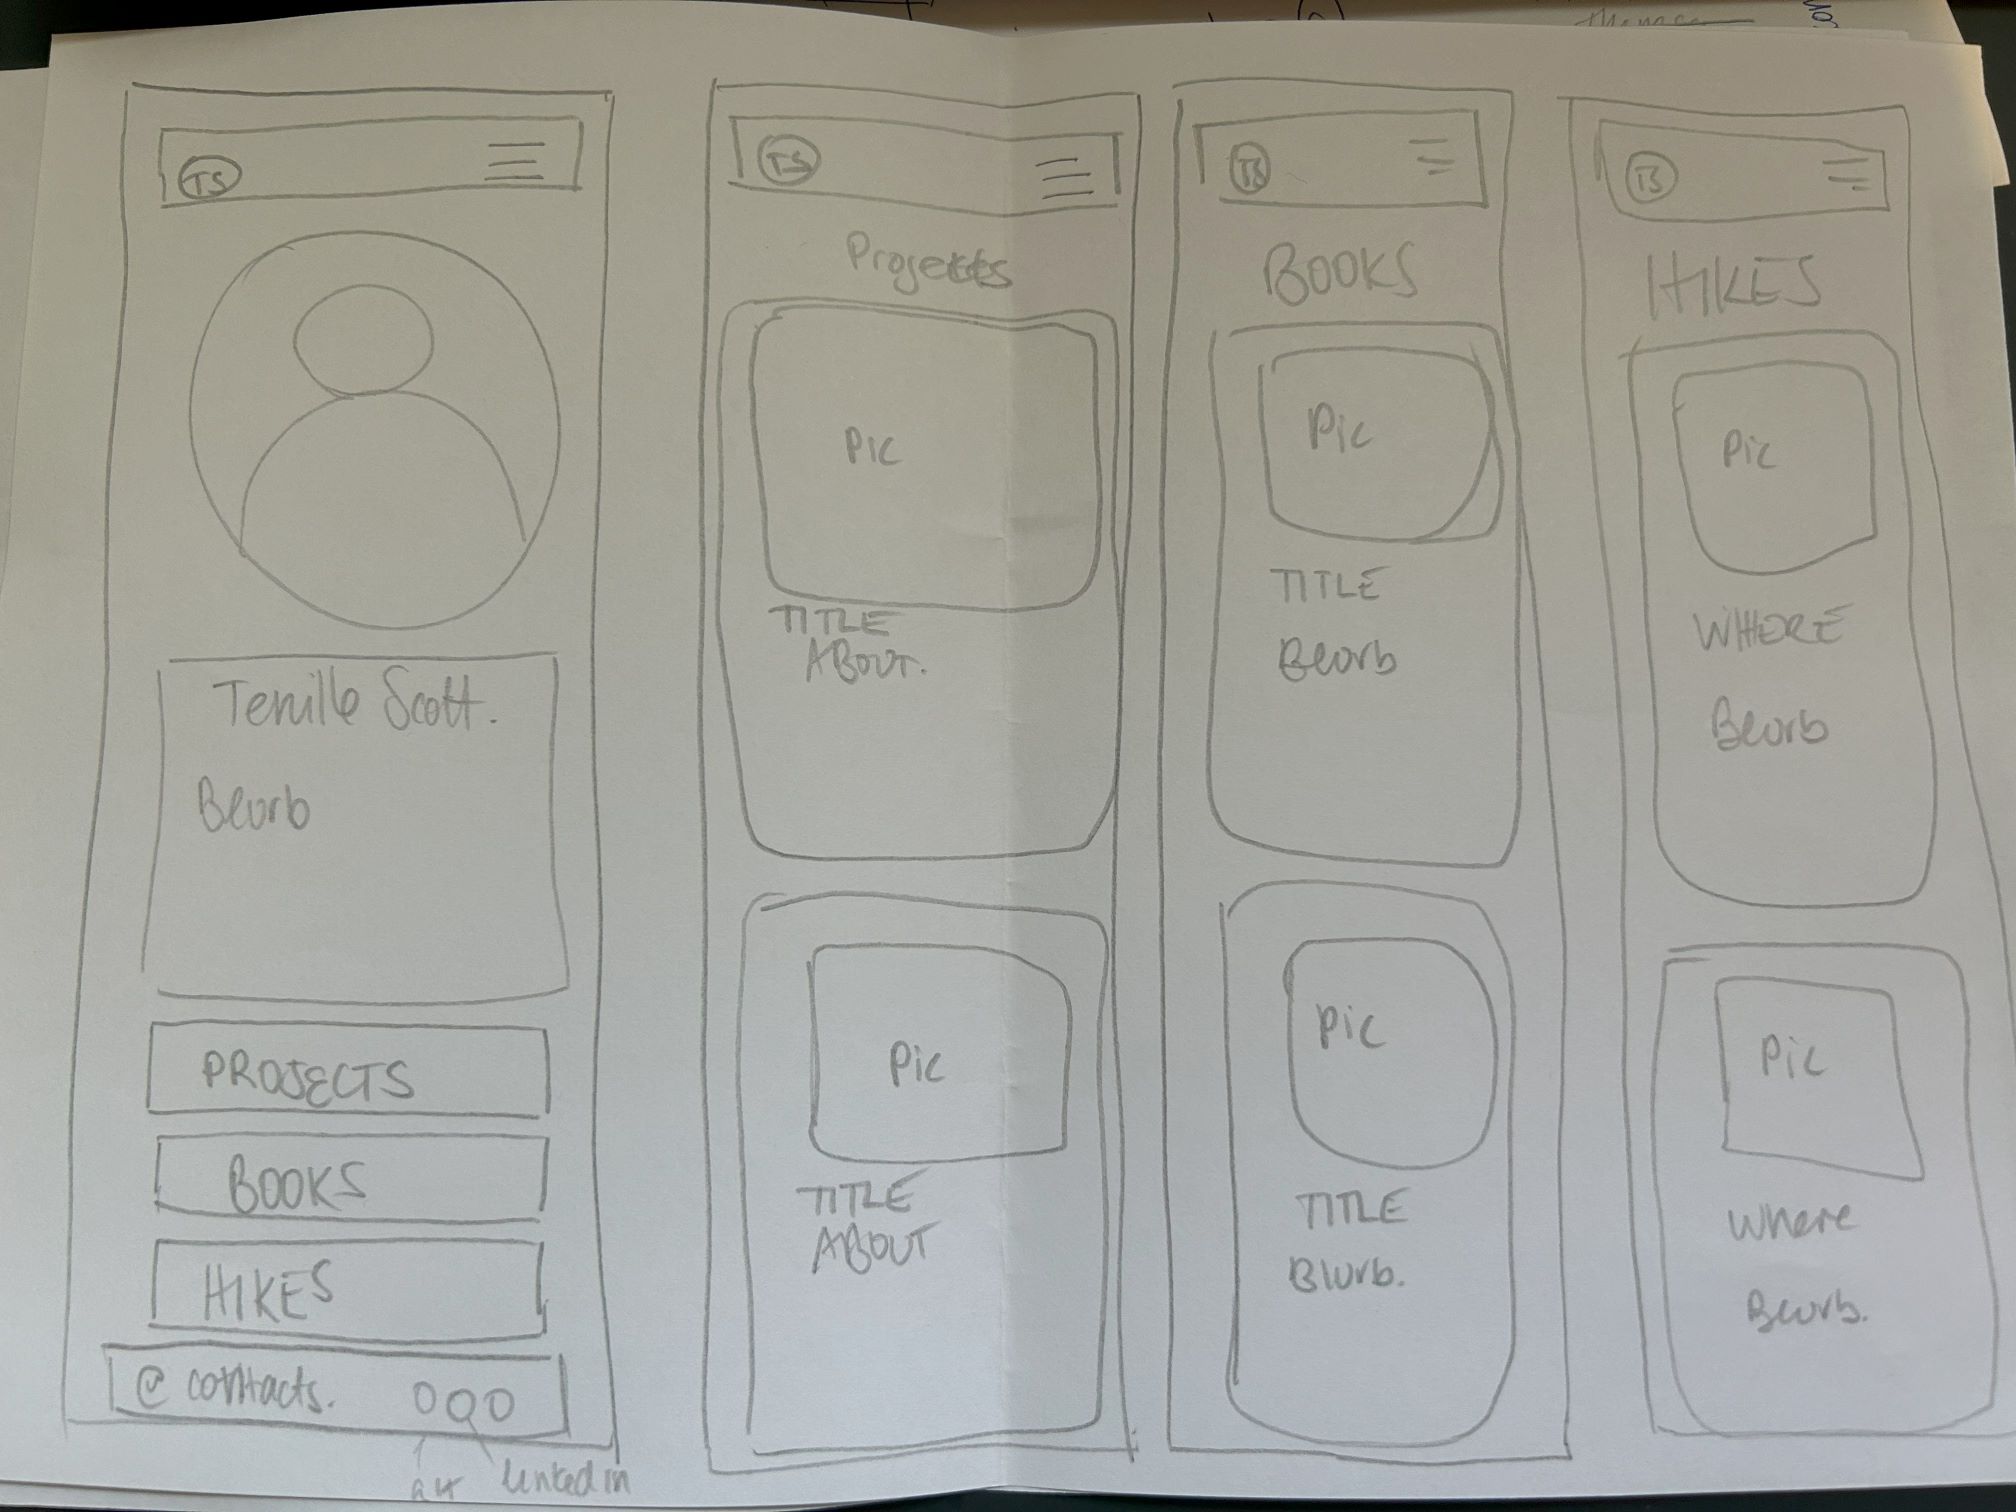 TS
Tenille Scott.
Blurb
PROJECTS
BOOKS
HIKES
@ contacts.
linked in
TS
Projects
Pic
TITLE
ABOUT.
Pic
TITLE
ABOUT
TS
BOOKS
Pic
TITLE
Blurb
Pic
TITLE
Blurb.
TS
HIKES
Pic
WHERE
Blurb
Pic
Where
Blurb.